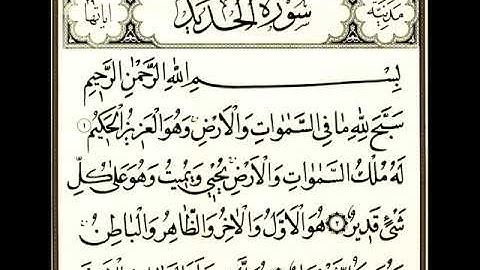 مدنية سورة الحديد آياتها ٢٩
بِسْمِ اللهِ الرَّحْمٰنِ الرَّحِيْمِ
سَبَّحَ لِلّٰهِ مَا فِي السَّمٰوَاتِ وَالْاَرْضِ وَهُوَ الْعَزِيْزُ الْحَكِيْمُ ١
لَهُ مُلْكُ السَّمٰوَاتِ وَالْاَرْضِ يُحْيٖ وَيُمِيْتُ وَهُوَ عَلٰى كُلِّ
شَيْءٍ قَدِيْرٌ ٢ هُوَ الْاَوَّلُ وَالْاٰخِرُ وَالظَّاهِرُ وَالْبَاطِنُ